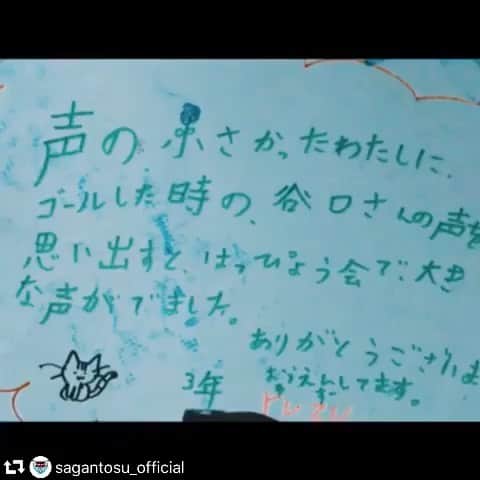 声の小さかったわたしに、
ゴールした時の、谷口さんの声を
思い出すと、はっぴょう会で、大き
な声がでました。
ありがとうございま
おうえんしてます。
3年
sagantosu_official